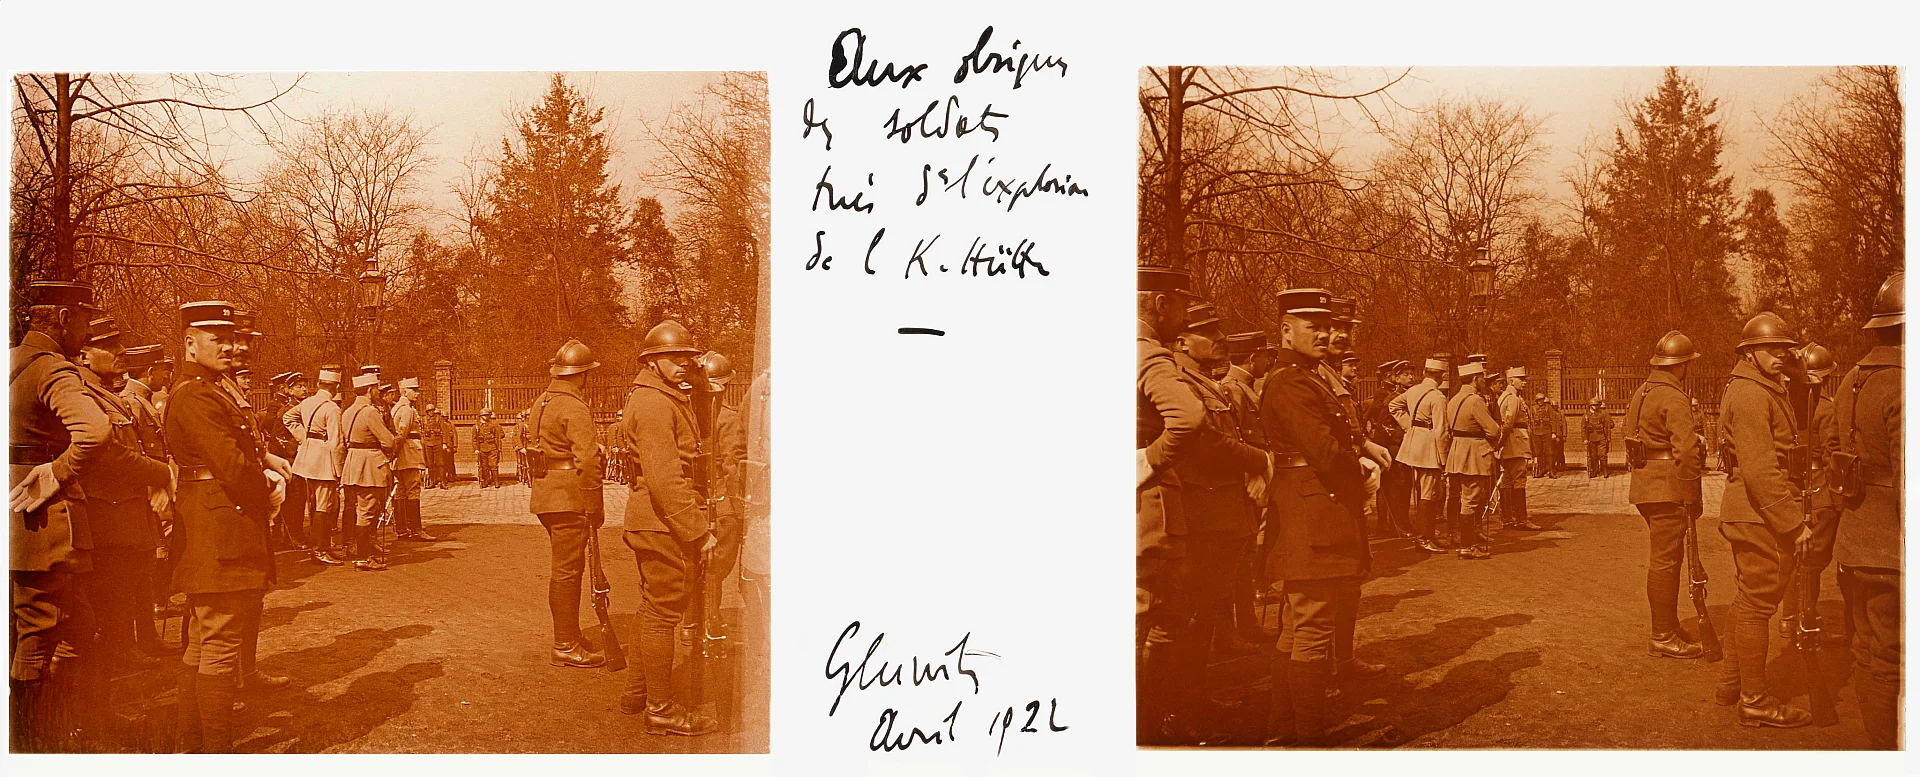 Aux obsèques
des soldats
tués ds l'explosion
de l K. Hütte
Gleiwitz
Avril 1922